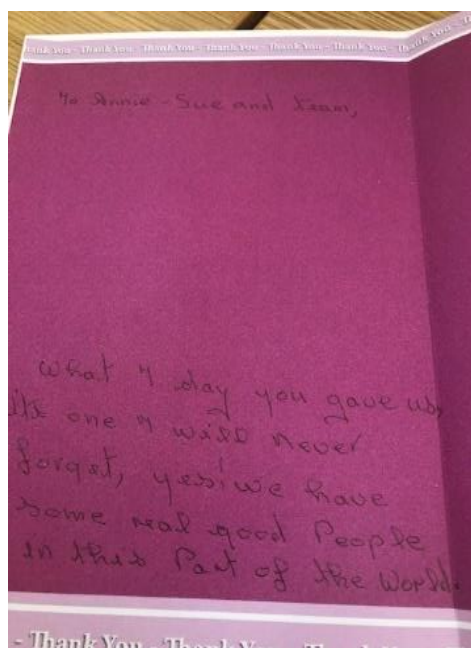 Thank You - Thank You - Thank You - Thank You - Thank You - Thank You - Thank You -
To Annie - Sue and team,
What A day you gave us,
Its one I will never
forget, yes! we have
some real good People
in this Part of the World.
- Thank You - Thank You - Thank You